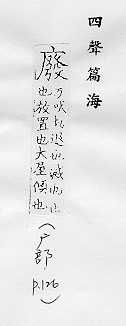 四聲篇海
廢
方吠切退也滅也止
也放置也大屋傾也
(广部
p.126)